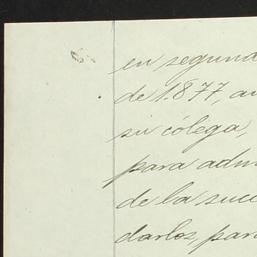 en segund
de 1877, a
su cólega,
para adm
de la suce
darlos, par